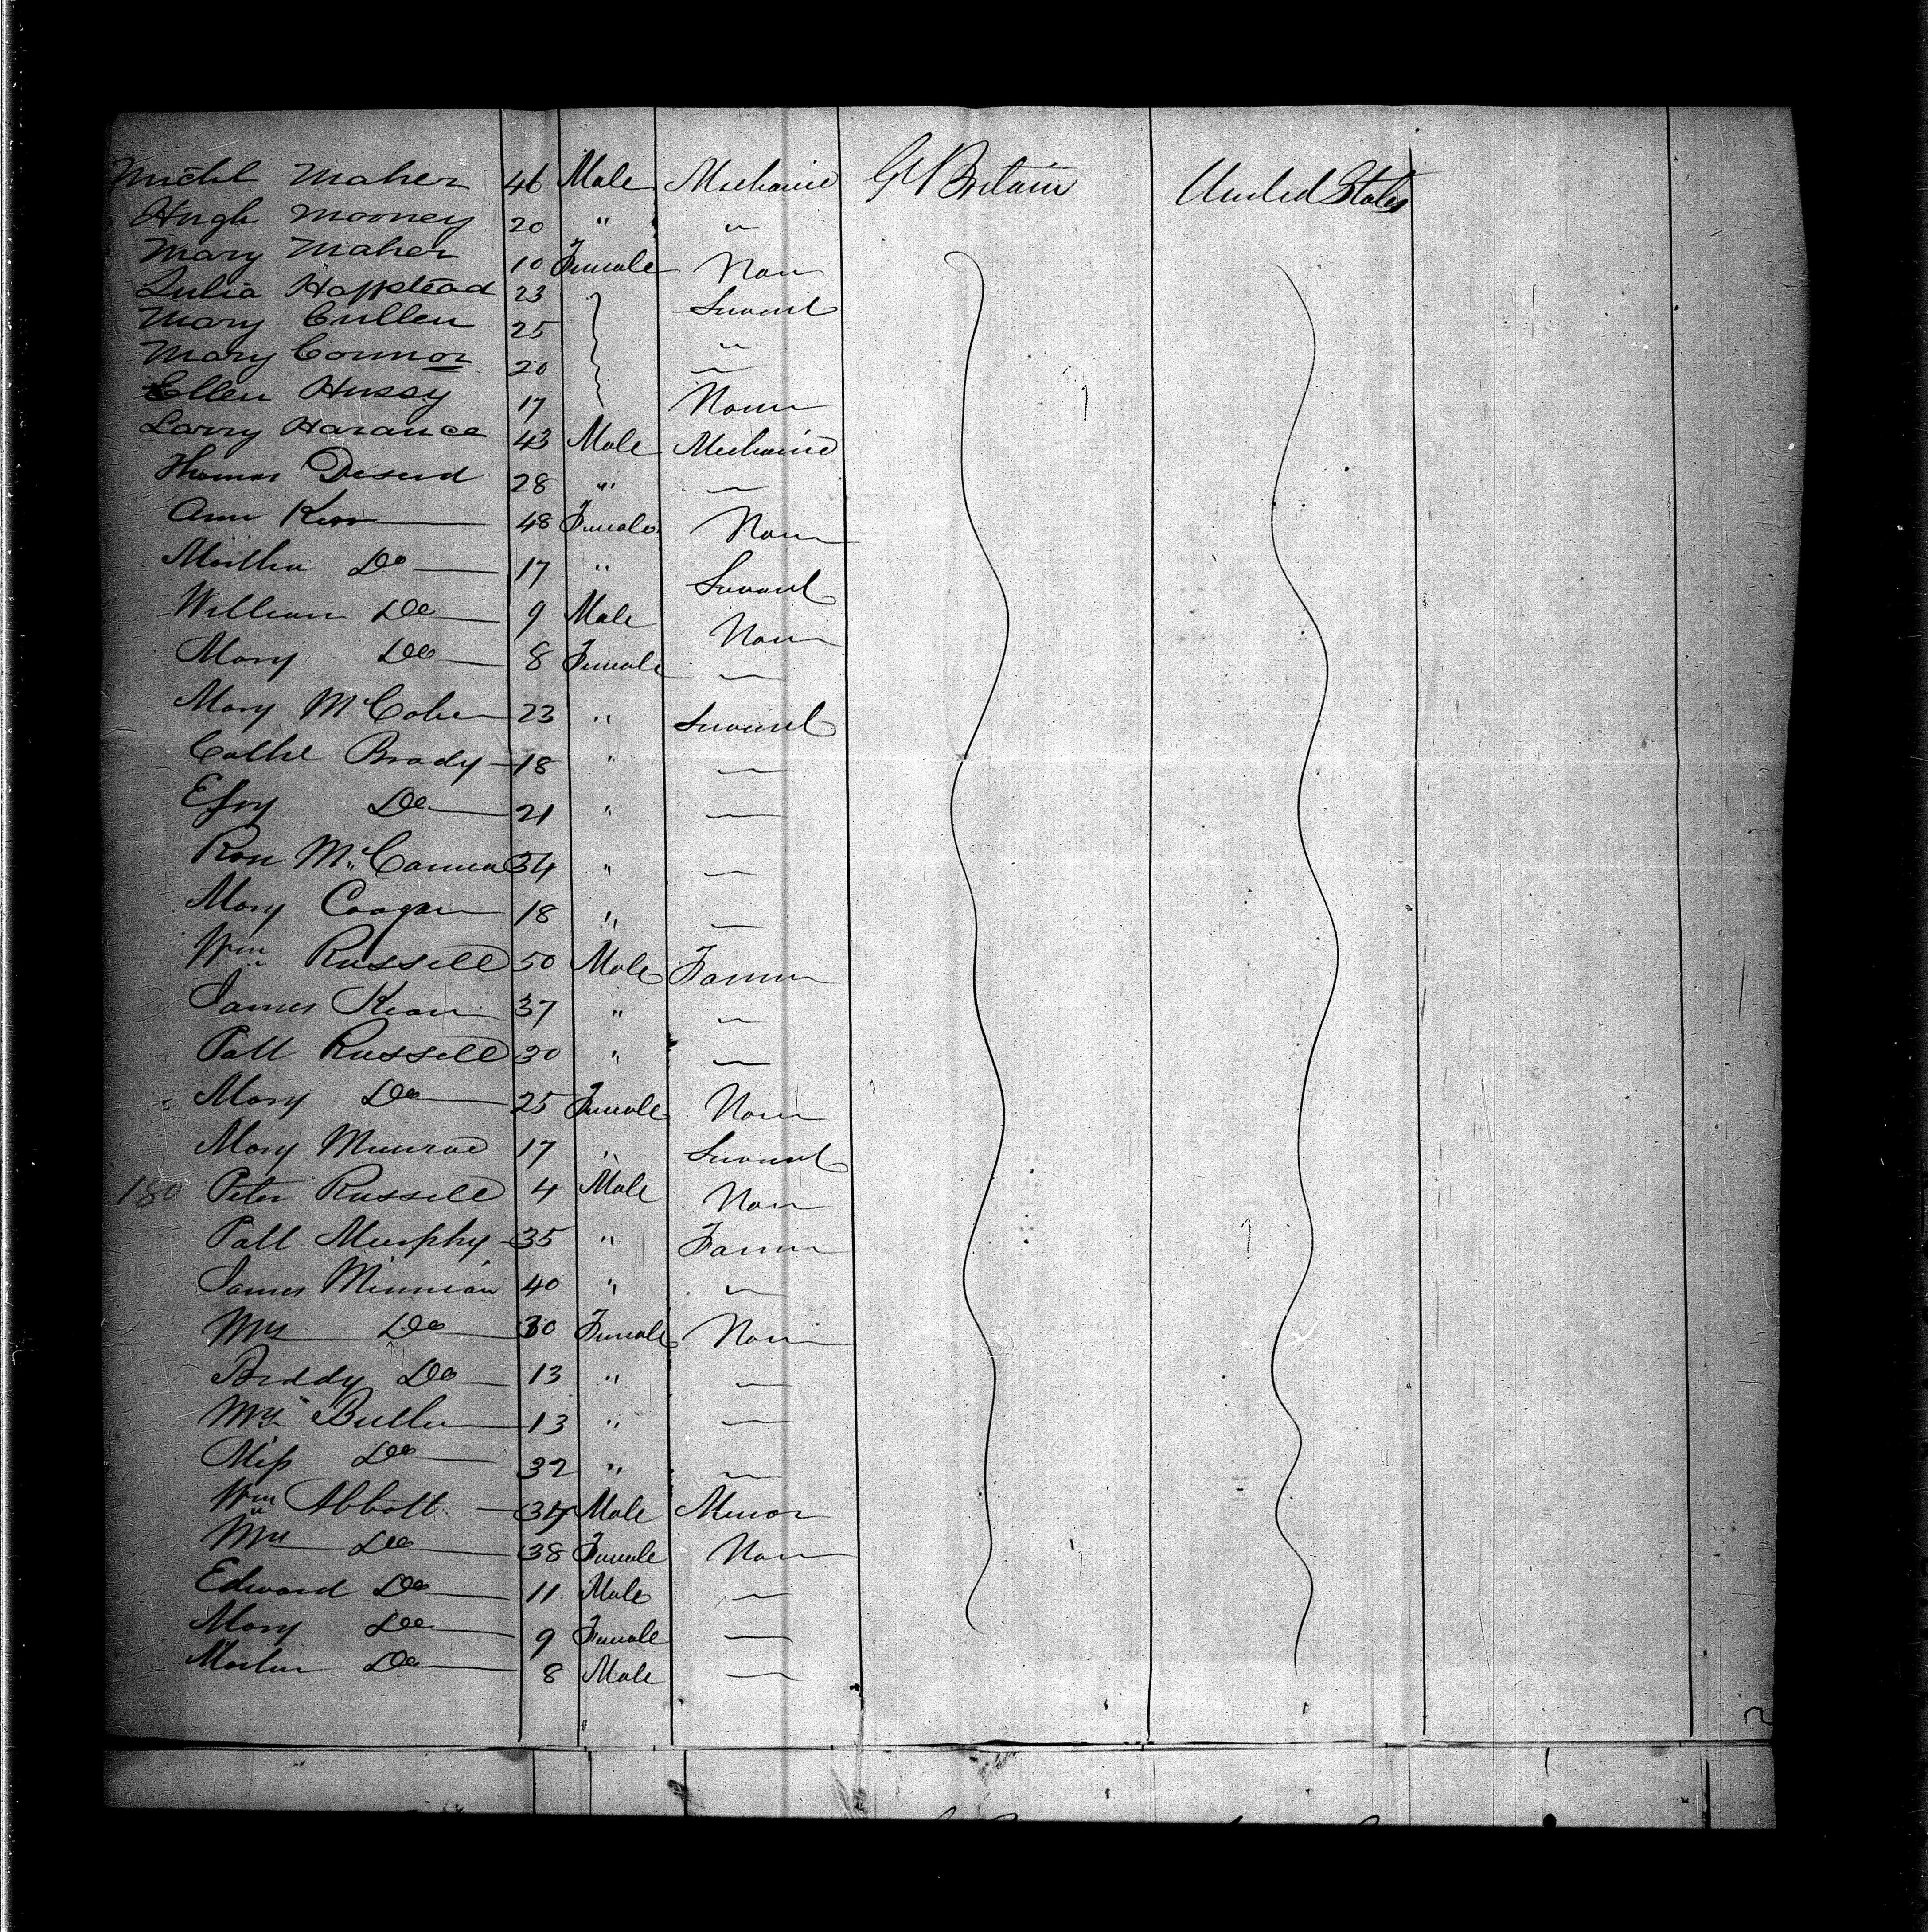 Michl Maher 46 Male Mechanic Gt Britain United States
Hugh Mooney 20 " "
Mary Maher 10 Female None
Julia Hoppstead 23 Servant
Mary Cullen 25 "
Mary Connor 20 "
Ellen Hussy 17 None
Larry Harance 43 Male Mechanic
Thomas 28 " "
Ann 48 Female None
Martha Do 17 " Servant
William Do 9 Male None
Mary Do 8 Female "
Mary McCabe 23 " Servant
Cathe Brady 18 " "
Do 21 " "
Rose 34 " "
Mary Coogan 18 " "
Wm Russell 50 Male Farmer
James Kean 37 " "
Patt Russell 30 " "
Mary Do 25 Female None
Mary Munroe 17 " Servant
180 Peter Russell 4 Male None
Patt Murphy 35 " Farmer
James Minnian 40 " "
Mrs Do 30 Female None
Biddy Do 13 " "
Butler 13 " "
Miss Do 32 " "
Wm Abbott Male Minor
Mrs Do 38 Female None
Edward Do 11 Male "
Mary Do 9 Female "
Martin Do 8 Male "